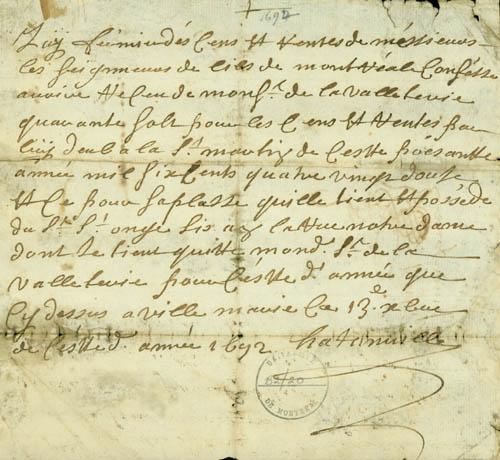 1692
Jay soussi des Cens et ventes de messieurs
les seigneurs de lisle de montreal Confesse
avoir Receu de mons.r de la valleterie
quarante solt pour les Cens et Ventes par
luy deub a la St martin de Cestte presantte
année mil six Cents quatre vingt douse
et Ce pour saplasse quille tient et possede
du Sr. St. onge sis a la Rue notre dame
dont Je tient quitte mond. Sr. de la
valleterie pour Cestte d. année que
Cy dessus a ville marie Ce 13e xbre
de Cestte d. année 1692
82/20
DE MONTREAL